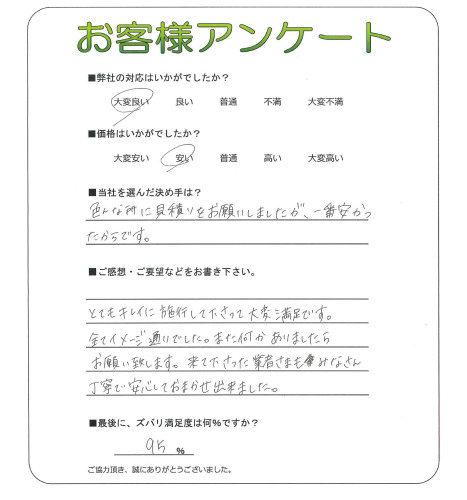 お客様アンケート
■弊社の対応はいかがでしたか？
大変良い 良い 普通 不満 大変不満
■価格はいかがでしたか？
大変安い 安い 普通 高い 大変高い
■当社を選んだ決め手は？
色んな所に見積りをお願いしましたが、一番安かっ
たからです。
■ご感想・ご要望などをお書き下さい。
とてもキレイに施行して下さって大変満足です。
全てイメージ通りでした。また何かありましたら
お願い致します。来て下さった業者さまもみなさん
丁寧で安心しておまかせ出来ました。
■最後に、ズバリ満足度は何％ですか？
95 %
ご協力頂き、誠にありがとうございました。